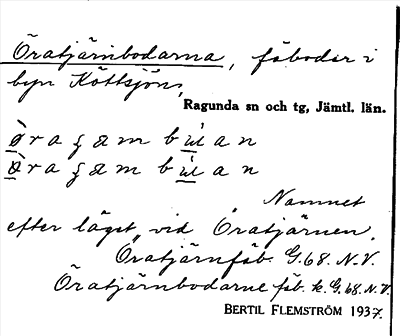 Öratjärnbodarna, fäbodar i
byn Köttsjön,
Ragunda sn och tg, Jämtl. län.
Namnet
efter läget vid Öratjärnen.
Öratjärnfäb. G.68. N.V.
Öratjärnbodarne fäb. k. G.68. N.V.
BERTIL FLEMSTRÖM 1937.